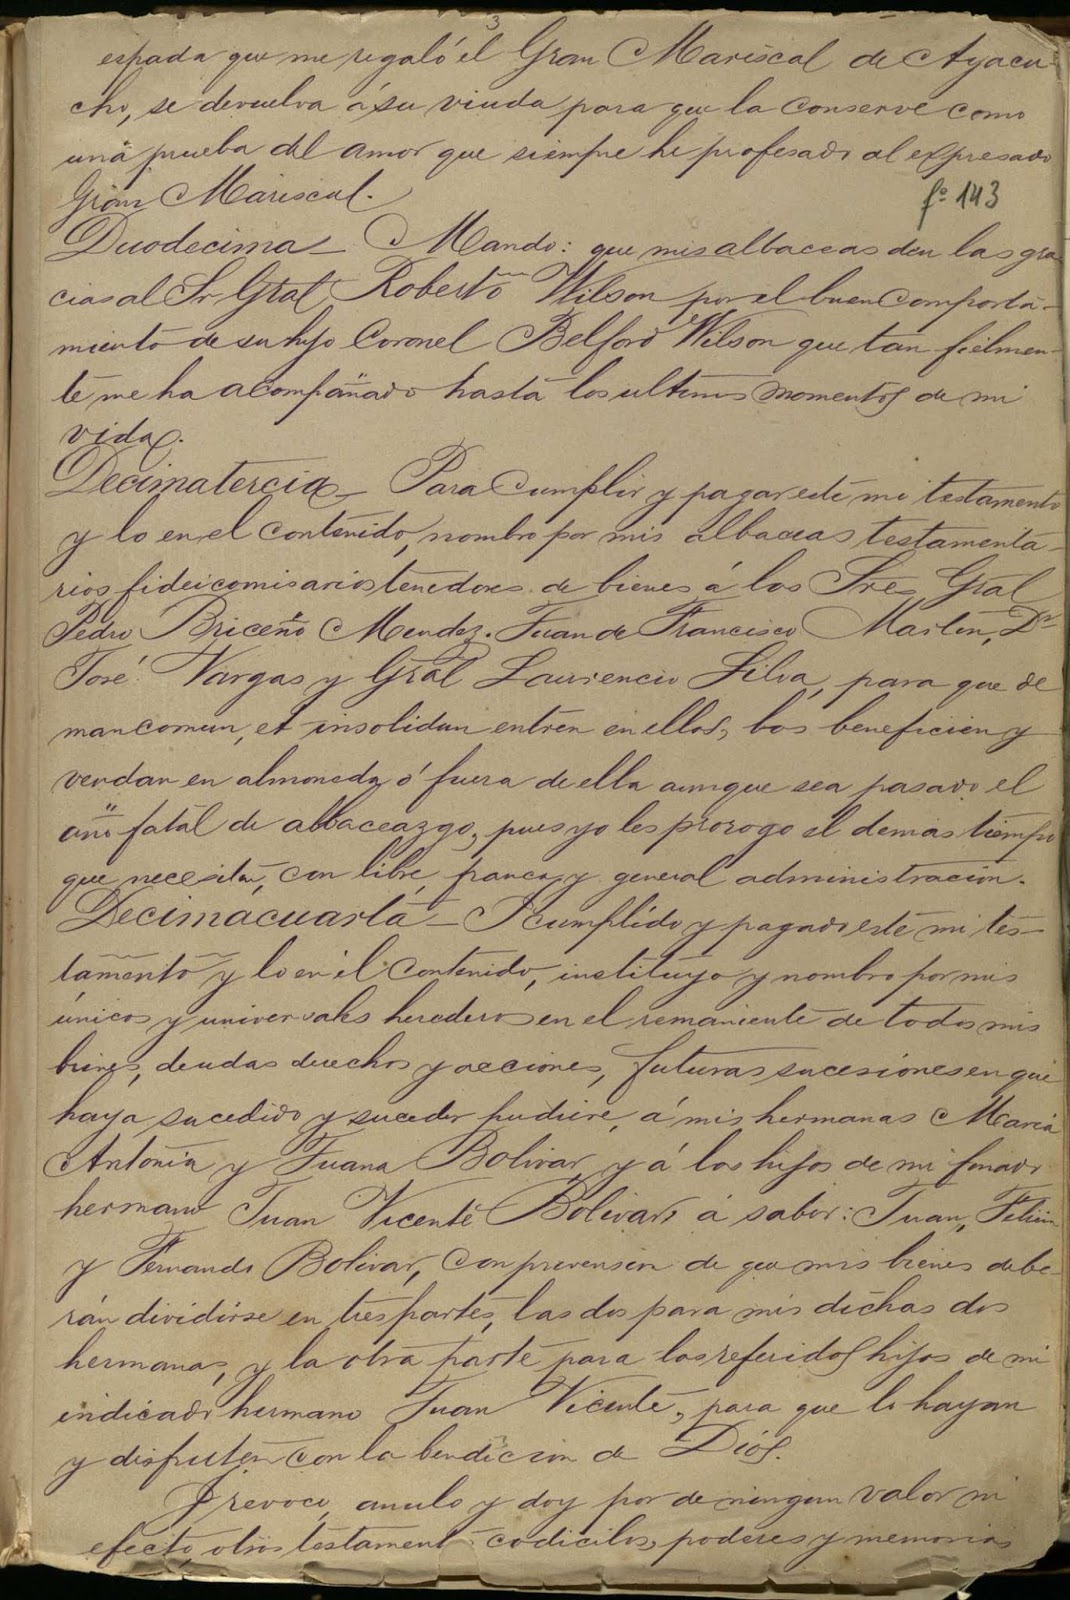 3
espada que me regaló el Gran Mariscal de Ayacu-
cho, se devuelva á su viuda para que la conserve como
una prueba del amor que siempre he profesado al espresado
Gran Mariscal.
fº 143
Duodecima – Mando: que mis albaceas den las gra
cias al Sr. Gral Roberto Wilson por el buen comporta-
miento de su hijo Coronel Belford Wilson que tan fielmen-
te me ha acompañado hasta los ultimos momentos de mi
vida.
Decimatercia – Para cumplir y pagar este mi testamento
y lo en el contenido, nombro por mis albaceas testamenta-
rios fideicomisarios tenedores de bienes á los Sres Gral
Pedro Briceño Mendez. Juan de Francisco Martin, Dr
José Vargas y Gral Laurencio Silva, para que de
mancomun, et insolidun entren en ellos, los beneficien y
vendan en almoneda ó fuera de ella aunque sea pasado el
año fatal de albaceazgo, pues yo les prorogo el demas tiempo
que necesiten, con libre, franca, y general administracion.
Decimacuarta – I cumplido y pagado este mi tes-
tamento y lo en él contenido, instituyo y nombro por mis
únicos y universales herederos en el remaniente de todos mis
bienes, deudas derechos y acciones, futuras sucesiones en que
haya sucedido y suceder pudiere, á mis hermanas María
Antonia y Juana Bolivar, y á los hijos de mi finado
hermano Juan Vicente Bolivar, á saber: Juan, Felicia
y Fernando Bolivar, con prevension de que mis bienes debe-
rán dividirse en tres partes, las dos para mis dichas dos
hermanas, y la otra parte para los referidos hijos de mi
indicado hermano Juan Vicente, para que lo hayan
y disfruten con la bendicion de Diós.
I revoco, anulo y doy por de ningun valor ni
efecto otros testament codicilos, poderes y memorias